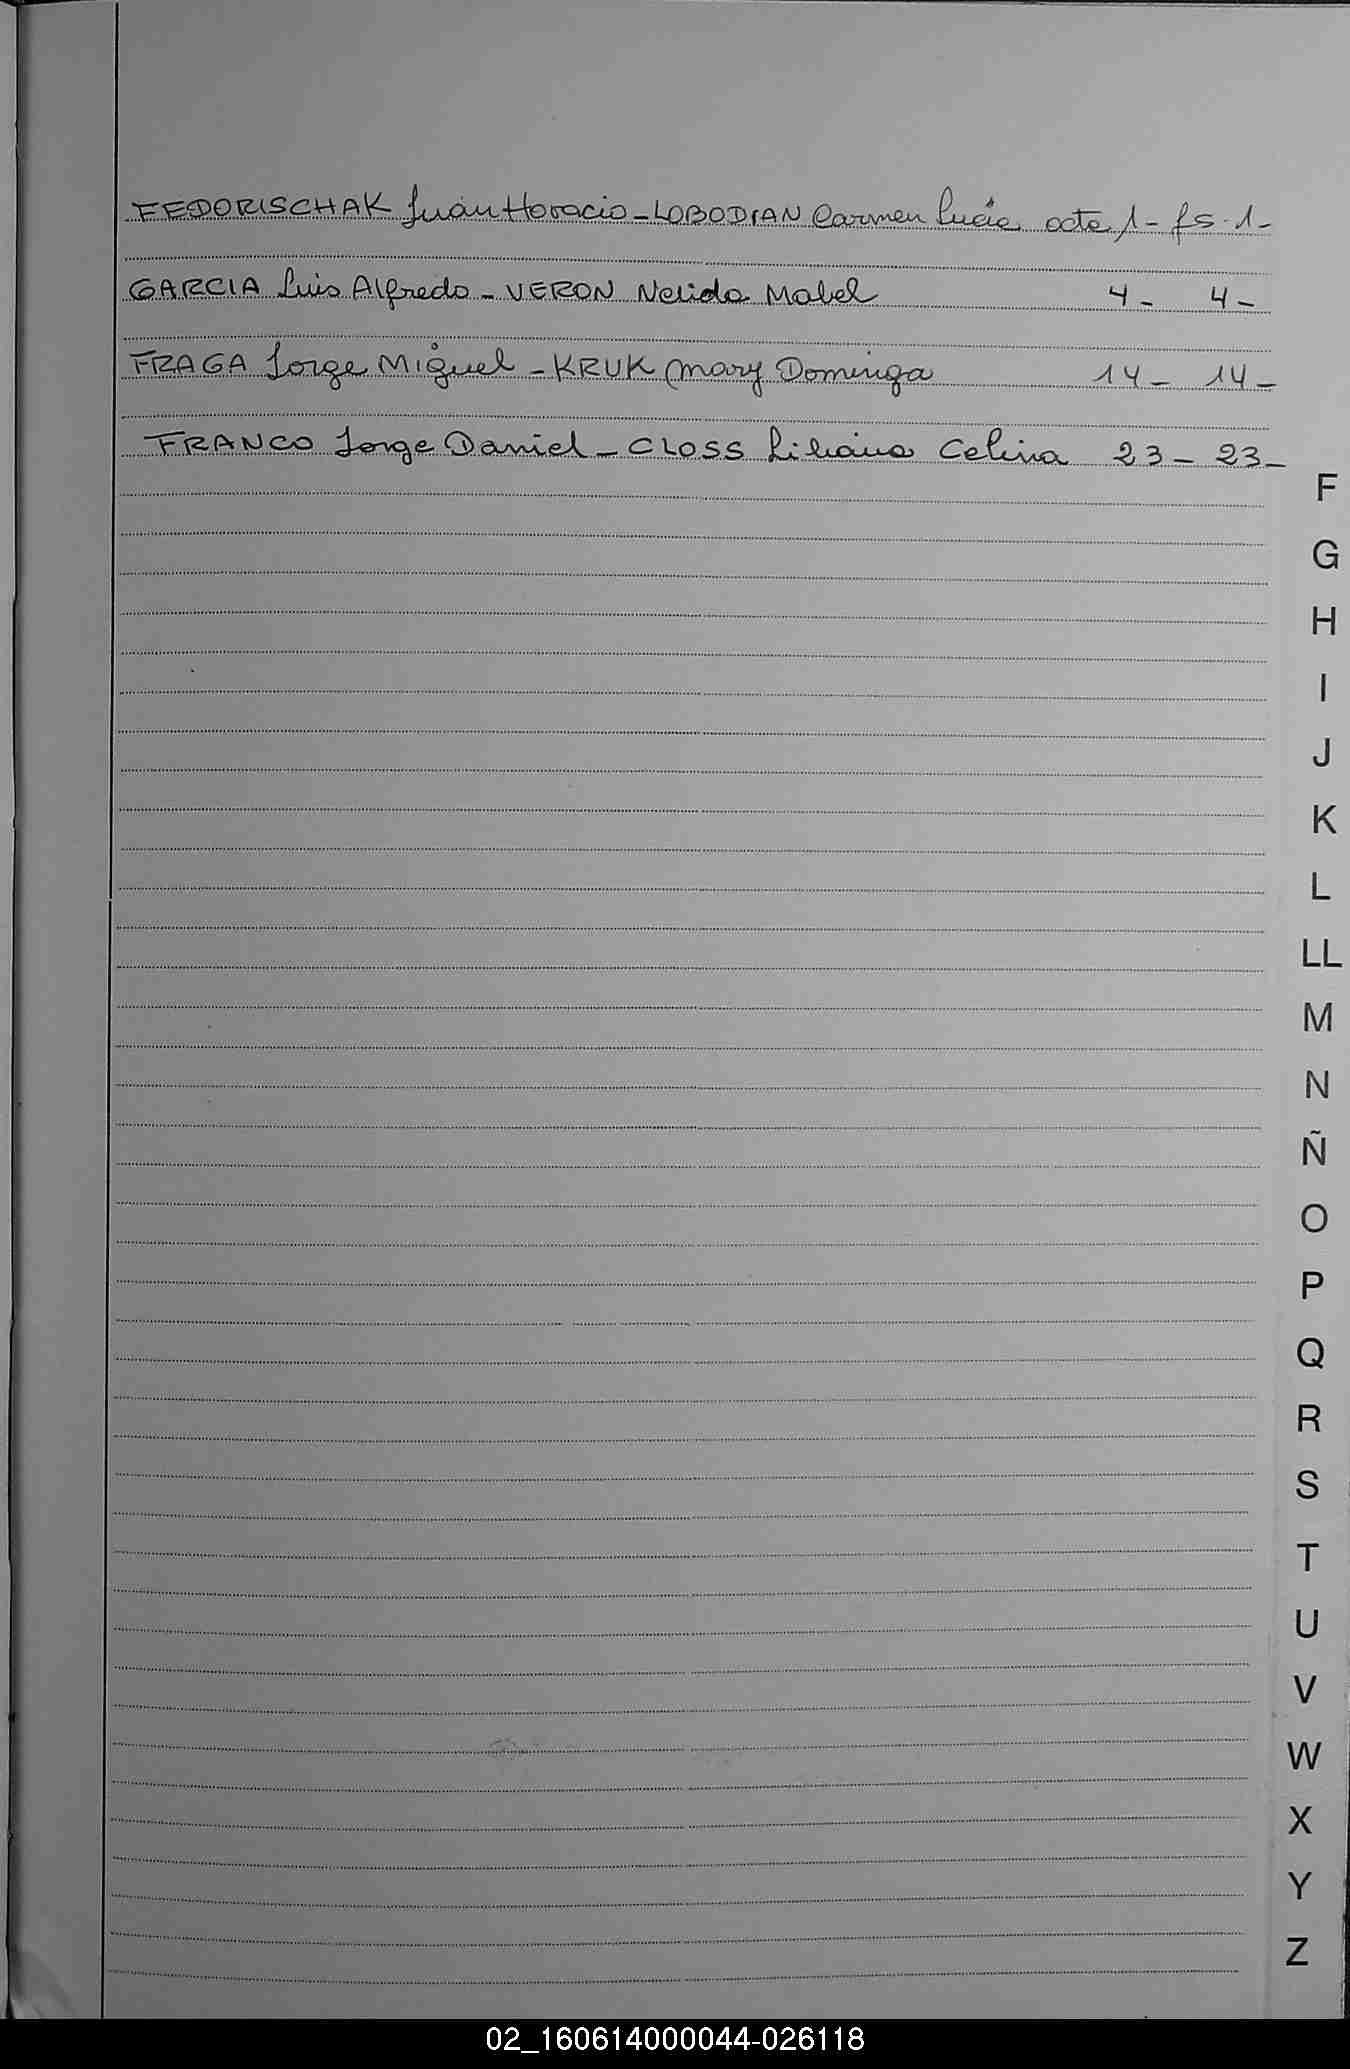 FEDORISCHAK Juan Horacio - LOBODIAN Carmen Lucia acta 1 - fs. 1 -
GARCIA Luis Alfredo - VERON Nelida Mabel 4 - 4 -
FRAGA Jorge Miguel - KRUK Mary Dominga 14 - 14 -
FRANCO Jorge Daniel - CLOSS Liliana Celina 23 - 23 -
F
G
H
I
J
K
L
LL
M
N
Ñ
O
P
Q
R
S
T
U
V
W
X
Y
Z
02_160614000044-026118